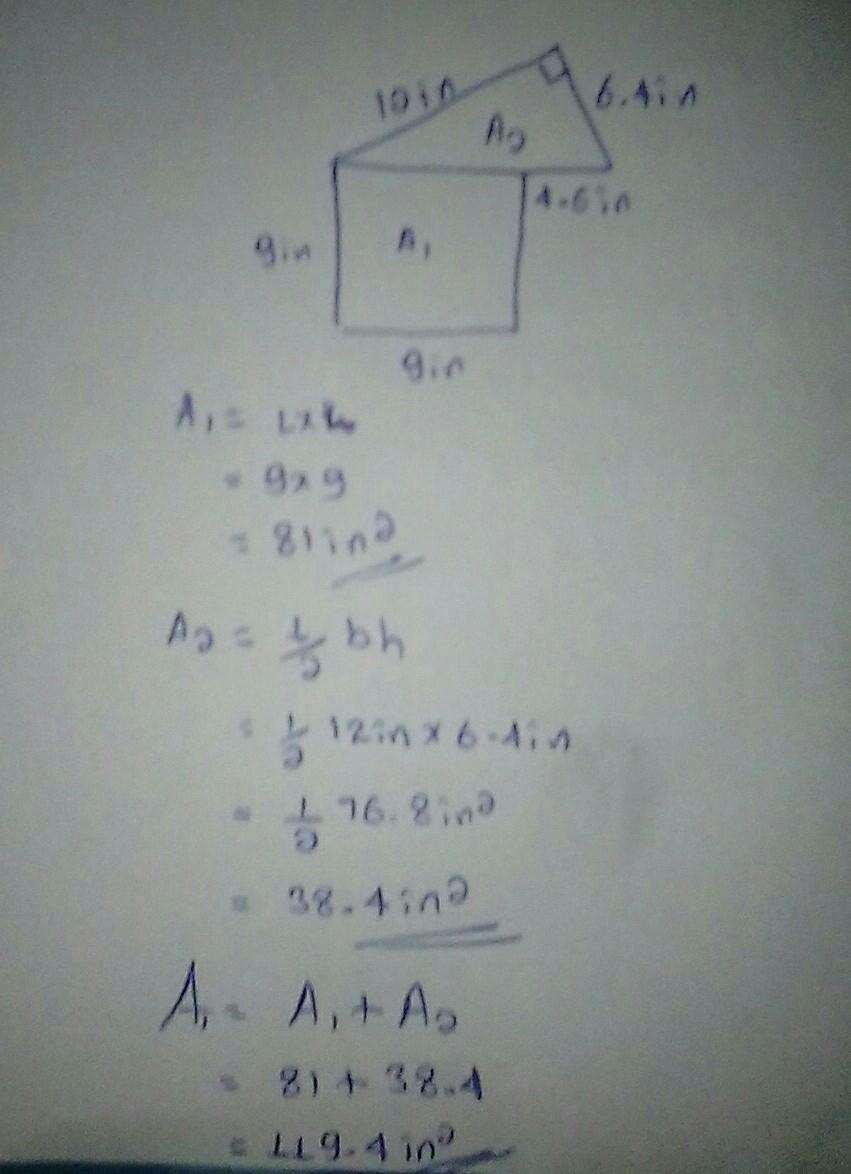 12in
6.4in
A₂
4.6in
9in
A₁
9in
A₁ = L×b
= 9×9
= 81in²
A₂ = 1/2 bh
= 1/2 12in × 6.4in
= 1/2 76.8in²
= 38.4in²
A₁ = A₁ + A₂
= 81 + 38.4
= 119.4in²